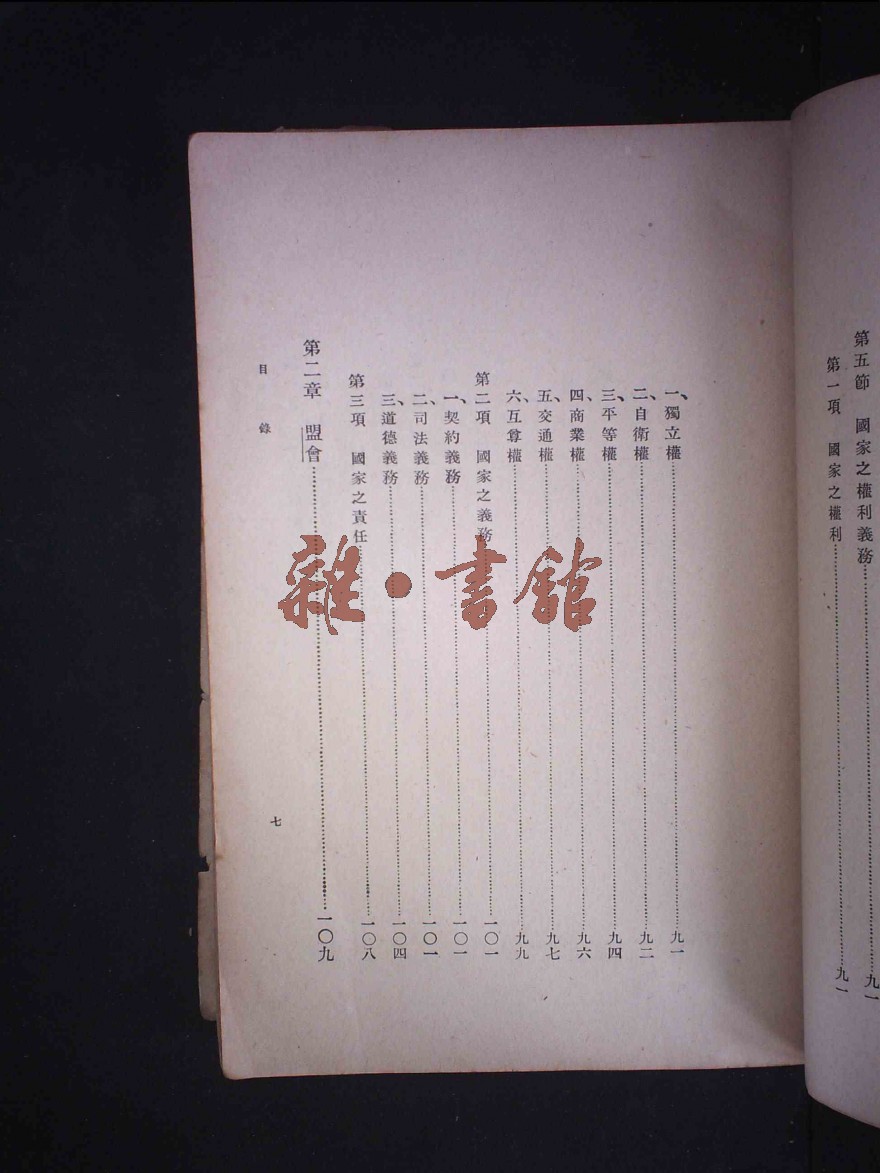 第五節　國家之權利義務……九一
第一項　國家之權利……九一
一、獨立權……九一
二、自衛權……九二
三、平等權……九四
四、商業權……九六
五、交通權……九七
六、互尊權……九九
第二項　國家之義務……一〇一
一、契約義務……一〇一
二、司法義務……一〇一
三、道德義務……一〇四
第三項　國家之責任……一〇八
第二章　盟會……一〇九
目錄
七
雜·書館